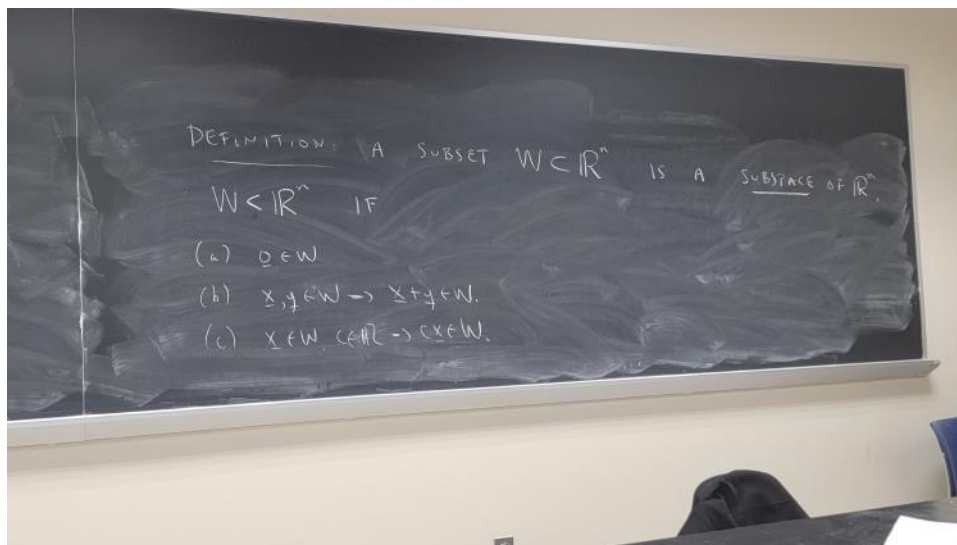 DEFINITION: A SUBSET W ⊂ ℝⁿ IS A SUBSPACE OF ℝⁿ,
W < ℝⁿ IF
(a) 0 ∈ W
(b) x, y ∈ W → x + y ∈ W.
(c) x ∈ W, c ∈ ℝ → cx ∈ W.